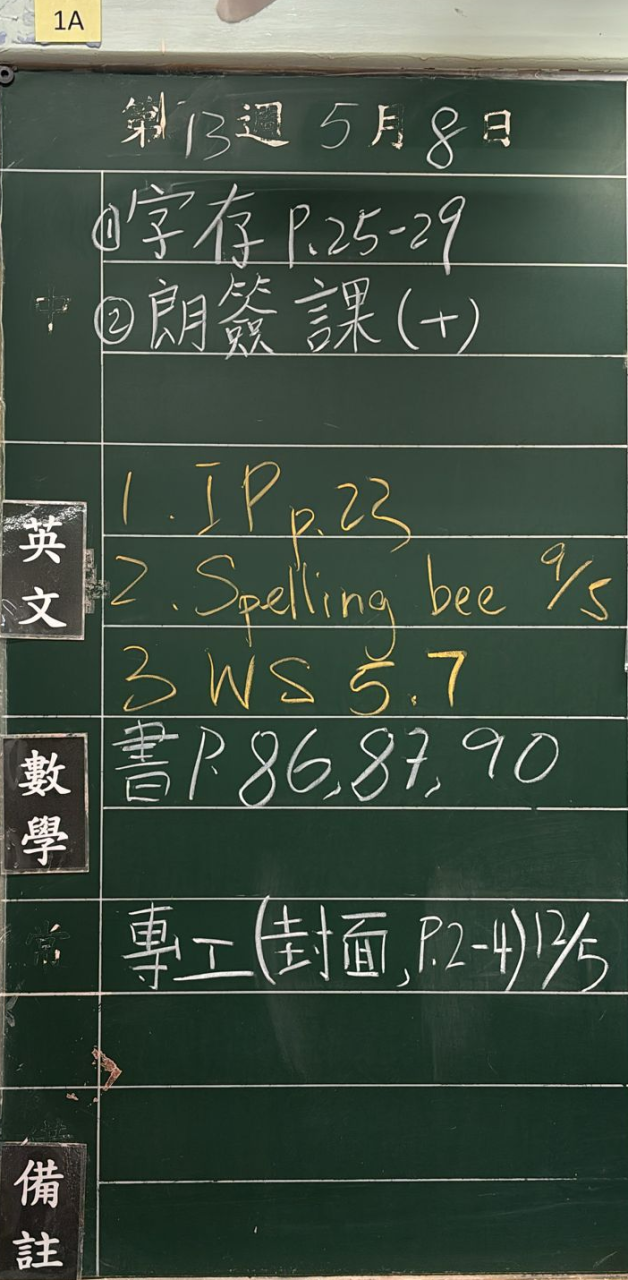 1A
第13週 5月8日
中
①字存 P.25-29
②朗簽 課(十)
英文
1. IP p.23
2. Spelling bee 9/5
3 WS 5.7
數學
書 P. 86, 87, 90
常
專工(封面, P.2-4) 12/5
備註